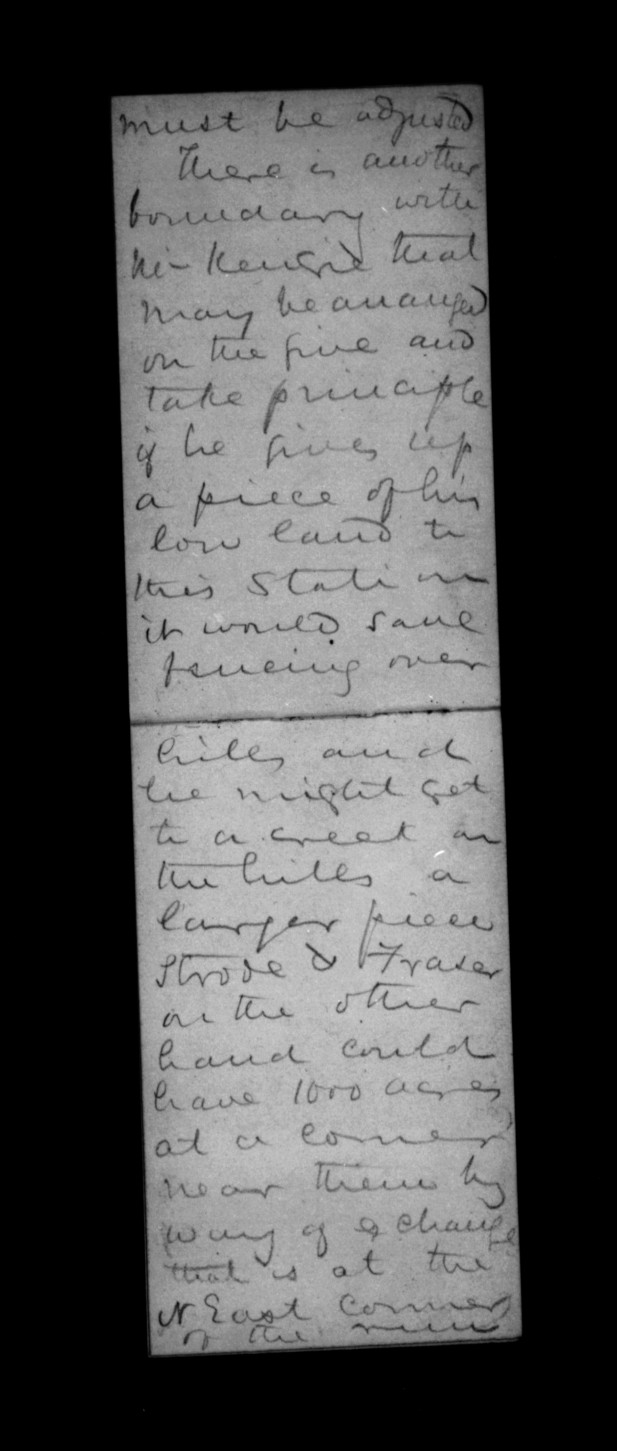 must be adjusted
There is another
boundary with
McKenzie that
may be arranged
on the give and
take principle
if he gives up
a piece of his
low land to
this Station
it would save
fencing over
hills and
he might get
to a creek on
the hills a
larger piece
Strode & Fraser
on the other
hand could
have 1000 acres
at a corner
near them by
way of exchange
that is at the
N East corner
of the run